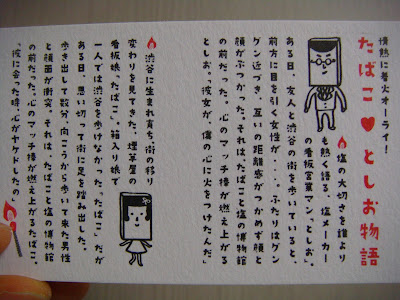 情熱に着火オーライ！
たばこ♥としお物語
塩の大切さを誰より
も熱く語る、塩メーカー
の看板営業マン。としお。
ある日、友人と渋谷の街を歩いていると、
前方に目を引く女性が‥‥。ふたりはグン
グン近づき、互いの距離感がつかめず顔と
顔がぶつかった。それは、たばこと塩の博物館
の前だった。心のマッチ棒が燃え上がる
としお。「彼女が、僕の心に火をつけたんだ」
渋谷に生まれ育ち、街の移り
変わりを見てきた、煙草屋の
看板娘。たばこ。箱入り娘で
一人では渋谷を歩けなかった、たばこ。だが
ある日、思い切って街に足を踏み出した。
歩き出して数分、向こうから歩いて来た男性
と顔面が衝突。それは、たばこと塩の博物館
の前だった。心のマッチ棒が燃え上がるたばこ。
「彼に会った時、心がヤケドしたの」